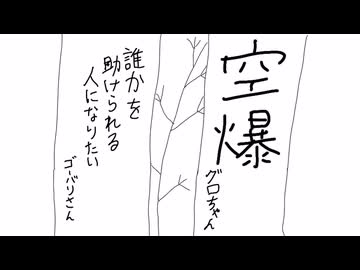 空爆
グロちゃん
誰かを
助けられる
人になりたい
ゴーバリさん